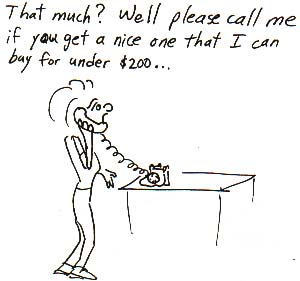 That much? Well please call me
if you get a nice one that I can
buy for under $200...